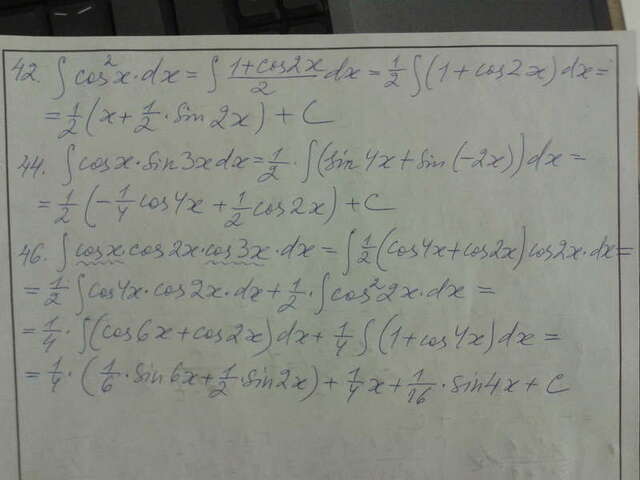 42. ∫ cos²x·dx = ∫ (1+cos2x)/2 dx = 1/2 ∫(1+cos2x)dx =
= 1/2 (x + 1/2 · sin 2x) + C
44. ∫ cosx·sin3xdx = 1/2 · ∫(sin4x + sin(-2x))dx =
= 1/2 (-1/4 cos4x + 1/2 cos2x) + C
46. ∫ cosx·cos2x·cos3x·dx = ∫ 1/2 (cos4x+cos2x)cos2x·dx =
= 1/2 ∫ cos4x·cos2x·dx + 1/2 · ∫ cos²2x·dx =
= 1/4 · ∫(cos6x+cos2x)dx + 1/4 ∫(1+cos4x)dx =
= 1/4 · (1/6 · sin6x + 1/2 · sin2x) + 1/4 x + 1/16 · sin4x + C